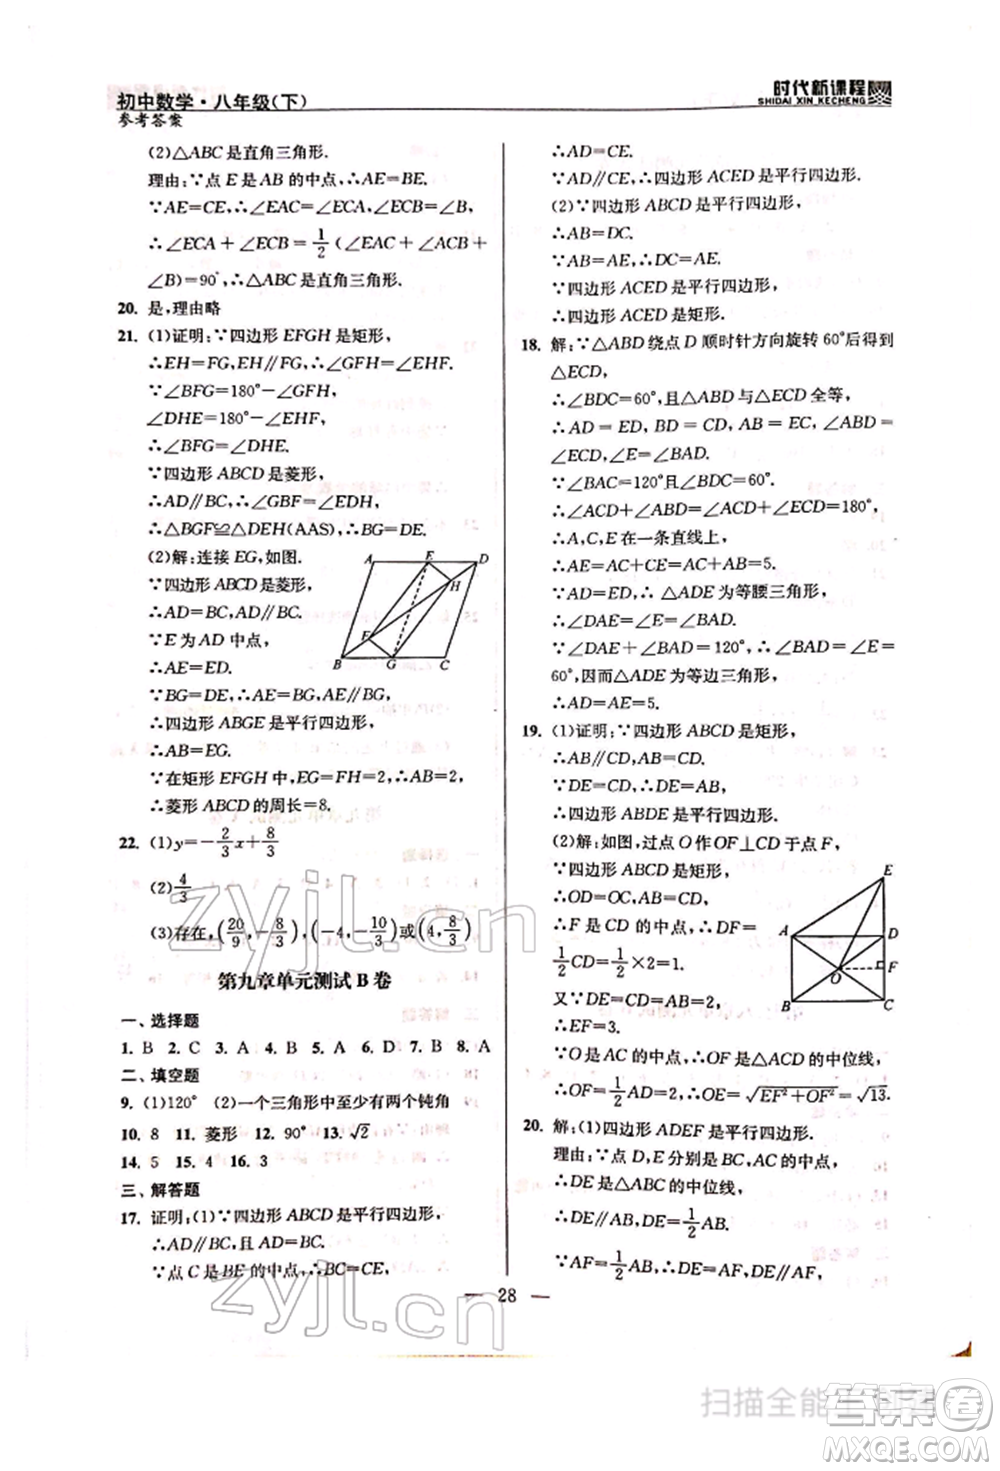 初中数学·八年级(下)
参考答案
时代新课程
SHIDAI XIN KECHENG
(2)△ABC是直角三角形.
理由:∵点E是AB的中点,∴AE=BE.
∵AE=CE,∴∠EAC=∠ECA,∠ECB=∠B,
∴∠ECA+∠ECB=1/2(∠EAC+∠ACB+
∠B)=90°,∴△ABC是直角三角形.
20. 是,理由略
21. (1)证明:∵四边形EFGH是矩形,
∴EH=FG,EH∥FG,∴∠GFH=∠EHF.
∵∠BFG=180°-∠GFH,
∠DHE=180°-∠EHF,
∴∠BFG=∠DHE.
∵四边形ABCD是菱形,
∴AD∥BC,∴∠GBF=∠EDH,
∴△BGF≌△DEH(AAS),∴BG=DE.
(2)解:连接EG,如图.
∵四边形ABCD是菱形,
∴AD=BC,AD∥BC.
∵E为AD中点,
∴AE=ED.
∵BG=DE,∴AE=BG,
∴四边形ABGE是平行四边形,
∴AB=EG.
∵在矩形EFGH中,EG=FH=2,∴AB=2,
∴菱形ABCD的周长=8.
A E D H F B G C
22. (1)y=-2/3x+8/3
(2)4/3
(3)存在,(20/9,-8/3),(-4,-10/3)或(4,8/3)
第九章单元测试B卷
一、选择题
1. B 2. C 3. A 4. B 5. A 6. D 7. B 8. A
二、填空题
9. (1)120° (2)一个三角形中至少有两个钝角
10. 8 11. 菱形 12. 90° 13. √2
14. 5 15. 4 16. 3
三、解答题
17. 证明:(1)∵四边形ABCD是平行四边形,
∴AD∥BC,AD=BC.
∵点C是BE的中点,∴BC=CE,
∴AD=CE.
∵AD∥CE,∴四边形ACED是平行四边形.
(2)∵四边形ABCD是平行四边形,
∴AB=DC.
∵AB=AE,∴DC=AE.
∵四边形ACED是平行四边形,
∴四边形ACED是矩形.
18. 解:∵△ABD绕点D顺时针方向旋转60°后得到
△ECD,
∴∠BDC=60°,且△ABD与△ECD全等,
∴AD=ED,BD=CD,AB=EC=2,
∠BDC=60°,∠E=∠BAD.
∵∠BAC=120°且∠BDC=60°.
∴∠ACD+∠ABD=∠ACD+∠ECD=180°,
∴A、C、E在一条直线上,
∴AE=AC+CE=AC+AB=5.
∵AD=ED,∴△ADE为等腰三角形,
∴∠DAE=∠E=∠BAD.
∵∠DAE+∠BAD=120°,∴∠BAD=∠E=
60°,因而△ADE为等边三角形,
∴AD=AE=5.
19. (1)证明:∵四边形ABCD是矩形,
∴AB∥CD,AB=CD.
∵DE=CD,∴DE=AB,
∴四边形ABDE是平行四边形.
(2)解:如图,过点O作OF⊥CD于点F,
∵四边形ABCD是矩形,
∴OD=OC,AB=CD,
∴F是CD的中点,∴DF=
1/2CD=1/2×2=1.
又∵DE=CD=AB=2,
∴EF=3.
E A D O F B C
∵O是AC的中点,∴OF是△ACD的中位线,
∴OF=1/2AD=2,∴OE=√EF²+OF²=√13.
20. 解:(1)四边形ADEF是平行四边形.
理由:∵点D、E分别是BC,AC的中点,
∴DE是△ABC的中位线,
∴DE∥AB,DE=1/2AB.
∵AF=1/2AB,∴DE=AF,
— 28 —
zyjl.cn
zyjl.cn
答案卷
MXQE.COM